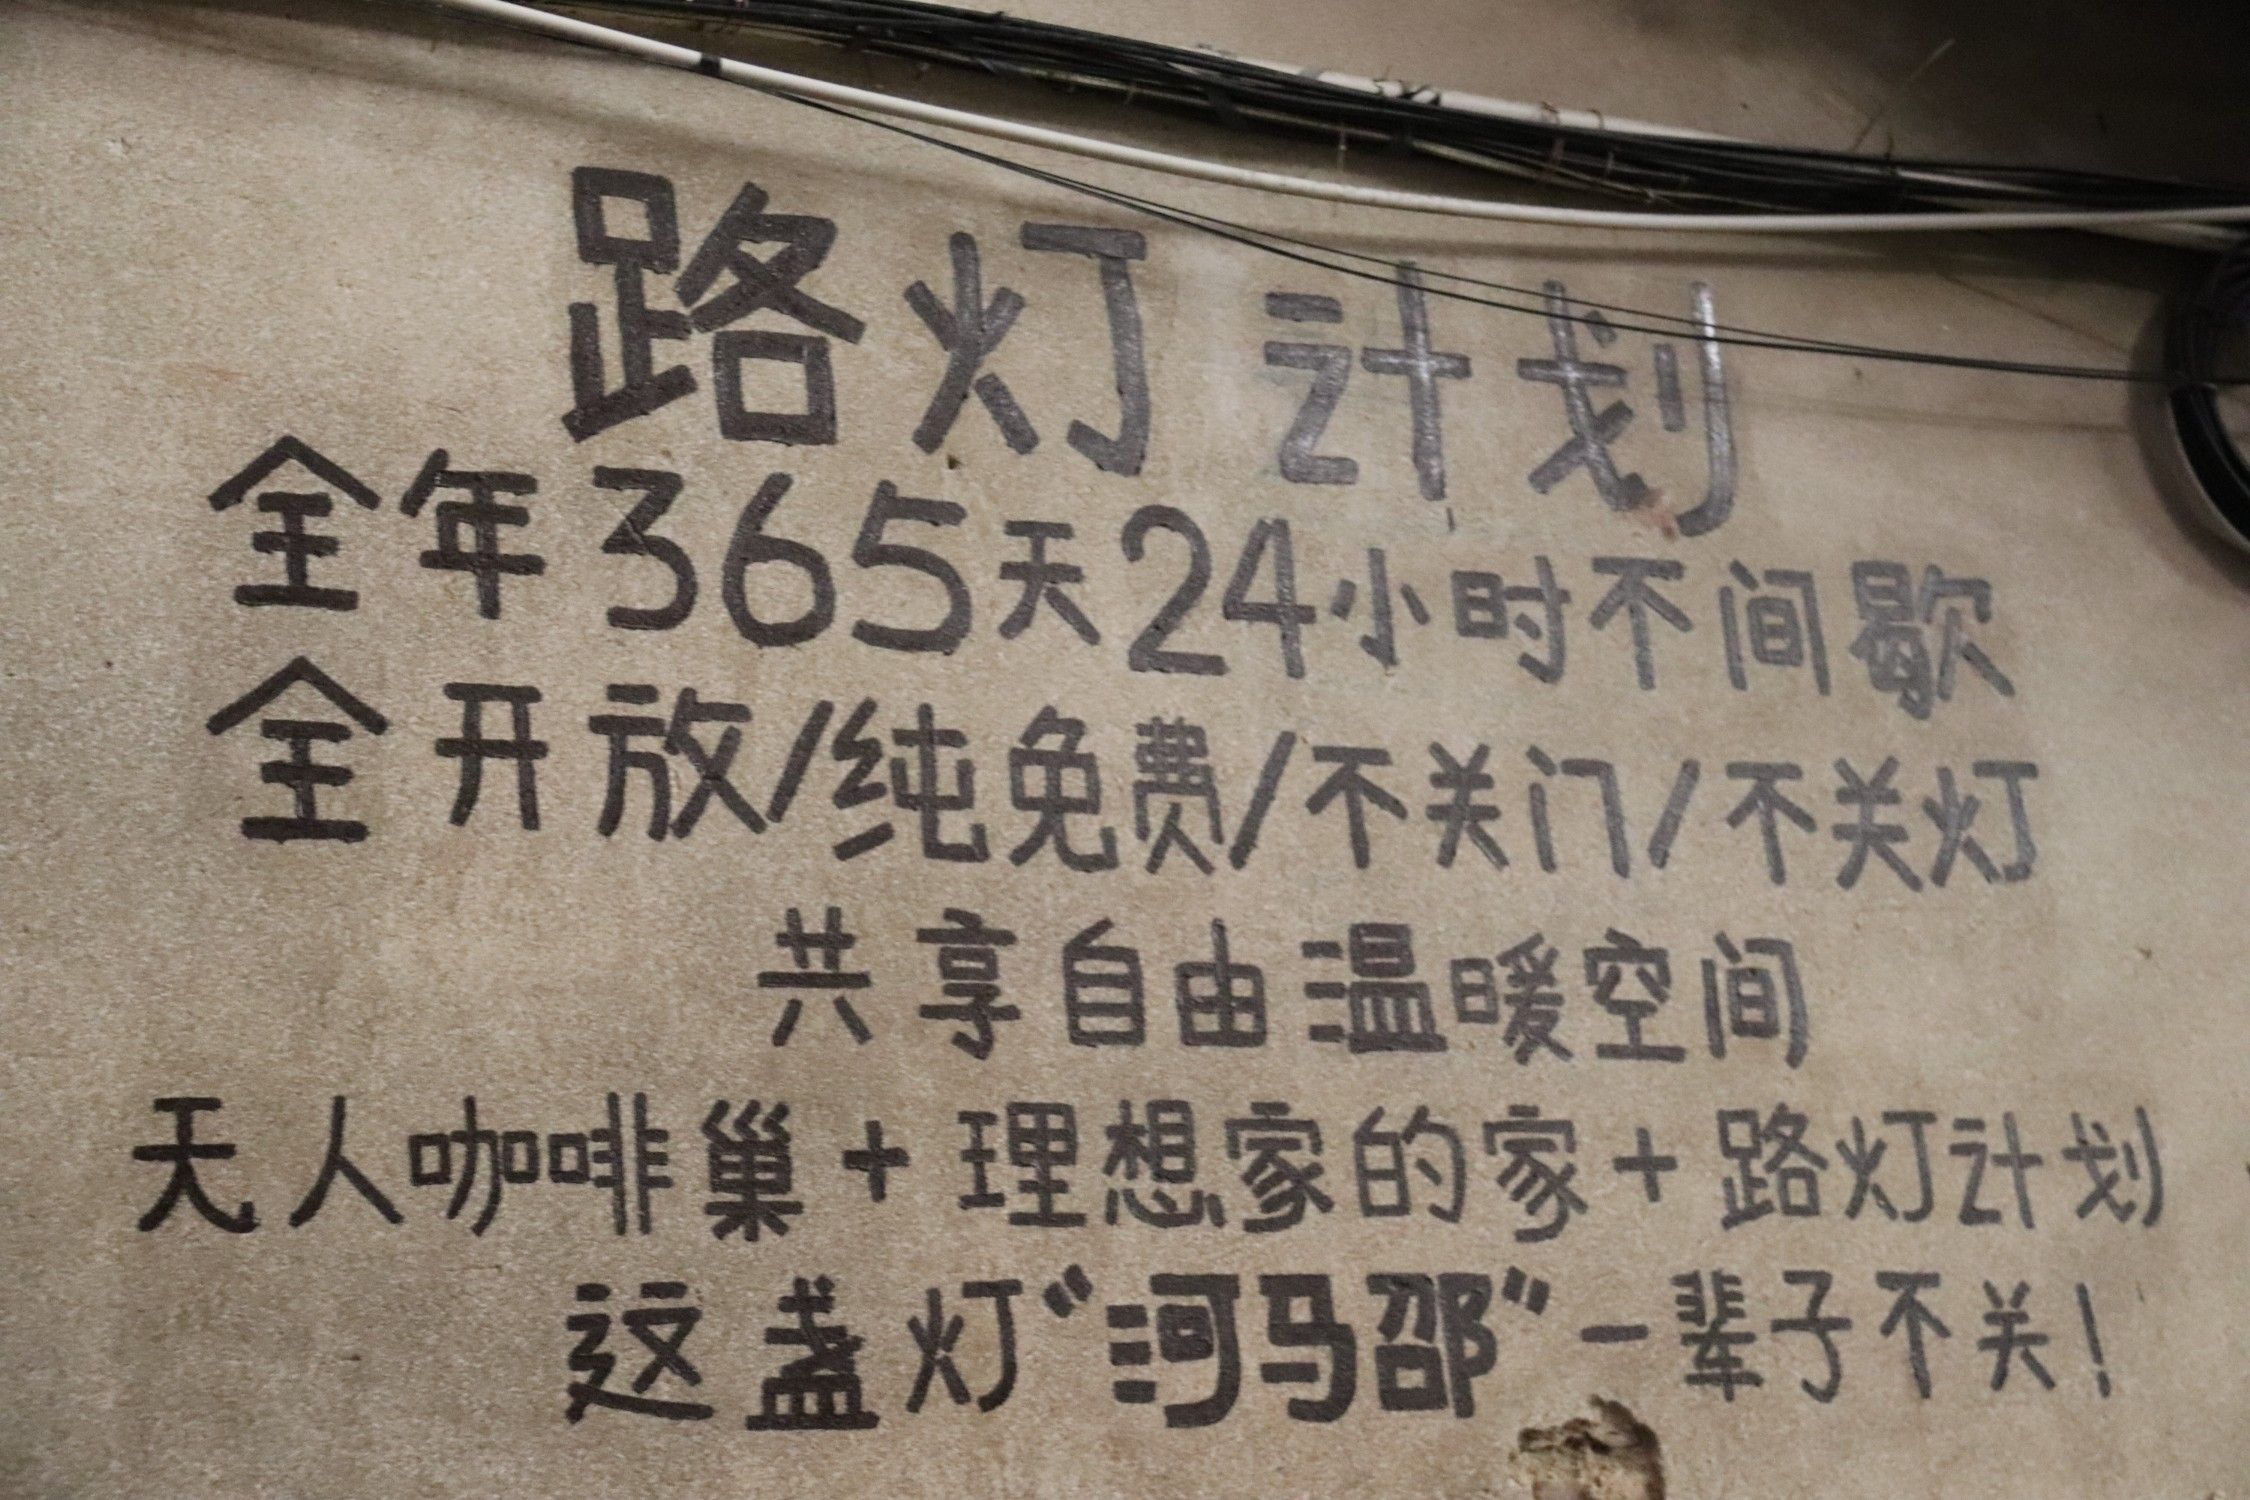 路灯计划
全年365天24小时不间歇
全开放/纯免费/不关门/不关灯
共享自由温暖空间
无人咖啡巢+理想家的家+路灯计划
这盏灯“河马邵”一辈子不关！